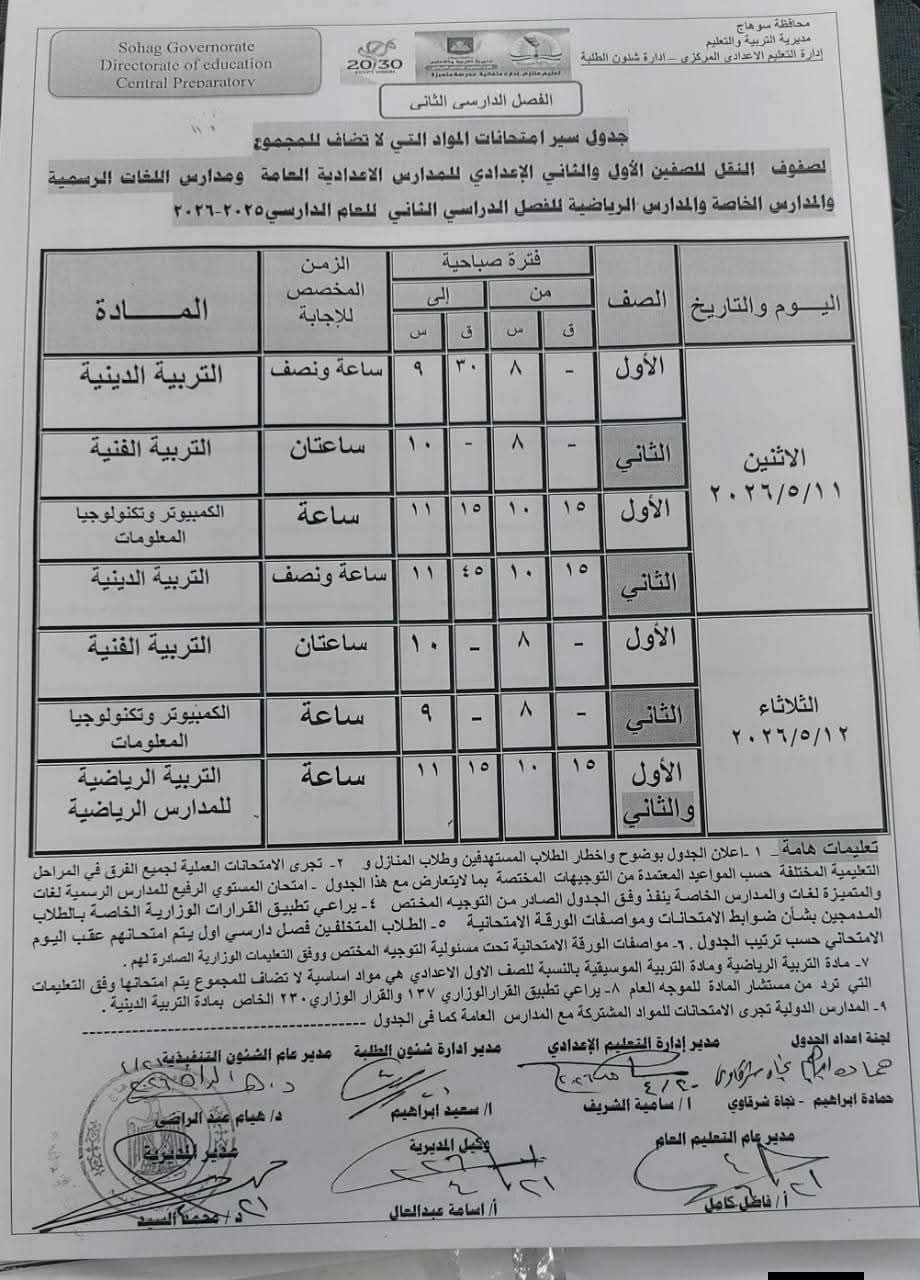 Sohag Governorate
Directorate of education
Central Preparatory
20/30
محافظة سوهاج
مديرية التربية والتعليم
إدارة التعليم الاعدادى المركزي – ادارة شئون الطلبة
الفصل الدارسى الثانى
جدول سير امتحانات المواد التي لا تضاف للمجموع
لصفوف النقل للصفين الأول والثاني الإعدادي للمدارس الاعدادية العامة ومدارس اللغات الرسمية
والمدارس الخاصة والمدارس الرياضية للفصل الدراسي الثاني للعام الدارسي ٢٠٢٥-٢٠٢٦
اليوم والتاريخ الصف فترة صباحية الزمن المخصص للإجابة المادة
من إلى
ق س ق س
الاثنين ٢٠٢٦/٥/١١
الأول - ٨ ٣٠ ٩ ساعة ونصف التربية الدينية
الثاني - ٨ - ١٠ ساعتان التربية الفنية
الأول ١٥ ١٠ ١٥ ١١ ساعة الكمبيوتر وتكنولوجيا المعلومات
الثاني ١٥ ١٠ ٤٥ ١١ ساعة ونصف التربية الدينية
الثلاثاء ٢٠٢٦/٥/١٢
الأول - ٨ - ١٠ ساعتان التربية الفنية
الثاني - ٨ - ٩ ساعة الكمبيوتر وتكنولوجيا المعلومات
الأول والثاني ١٥ ١٠ ١٥ ١١ ساعة التربية الرياضية للمدارس الرياضية
تعليمات هامة – ١ -اعلان الجدول بوضوح واخطار الطلاب المستهدفين وطلاب المنازل و ٢- تجرى الامتحانات العملية لجميع الفرق في المراحل
التعليمية المختلفة حسب المواعيد المعتمدة من التوجيهات المختصة بما لايتعارض مع هذا الجدول - امتحان المستوي الرفيع للمدارس الرسمية لغات
والمتميزة لغات والمدارس الخاصة ينفذ وفق الجدول الصادر من التوجيه المختص ٤- يراعي تطبيق القرارات الوزارية الخاصة بالطلاب
المدمجين بشأن ضوابط الامتحانات ومواصفات الورقة الامتحانية ٥- الطلاب المتخلفين فصل دارسي اول يتم امتحانهم عقب اليوم
الامتحاني حسب ترتيب الجدول . ٦- مواصفات الورقة الامتحانية تحت مسئولية التوجيه المختص ووفق التعليمات الوزارية الصادرة لهم .
٧- مادة التربية الرياضية ومادة التربية الموسيقية بالنسبة للصف الاول الاعدادي هي مواد اساسية لا تضاف للمجموع يتم امتحانها وفق التعليمات
التي ترد من مستشار المادة للموجه العام ٨- يراعي تطبيق القرارالوزاري ١٣٧ والقرار الوزاري ٢٣٠ الخاص بمادة التربية الدينية .
٩- المدارس الدولية تجرى الامتحانات للمواد المشتركة مع المدارس العامة كما فى الجدول
لجنة اعداد الجدول مدير إدارة التعليم الإعدادي مدير ادارة شئون الطلبة مدير عام الشئون التنفيذية
حمادة ابراهيم - نجاة شرقاوي أ/ سامية الشريف ا/ سعيد ابراهيم د/ هيام عبد الراضي
مدير عام التعليم العام وكيل المديرية مدير المديرية
أ/ فاضل كامل أ/ اسامة عبدالعال د/ محمد السيد